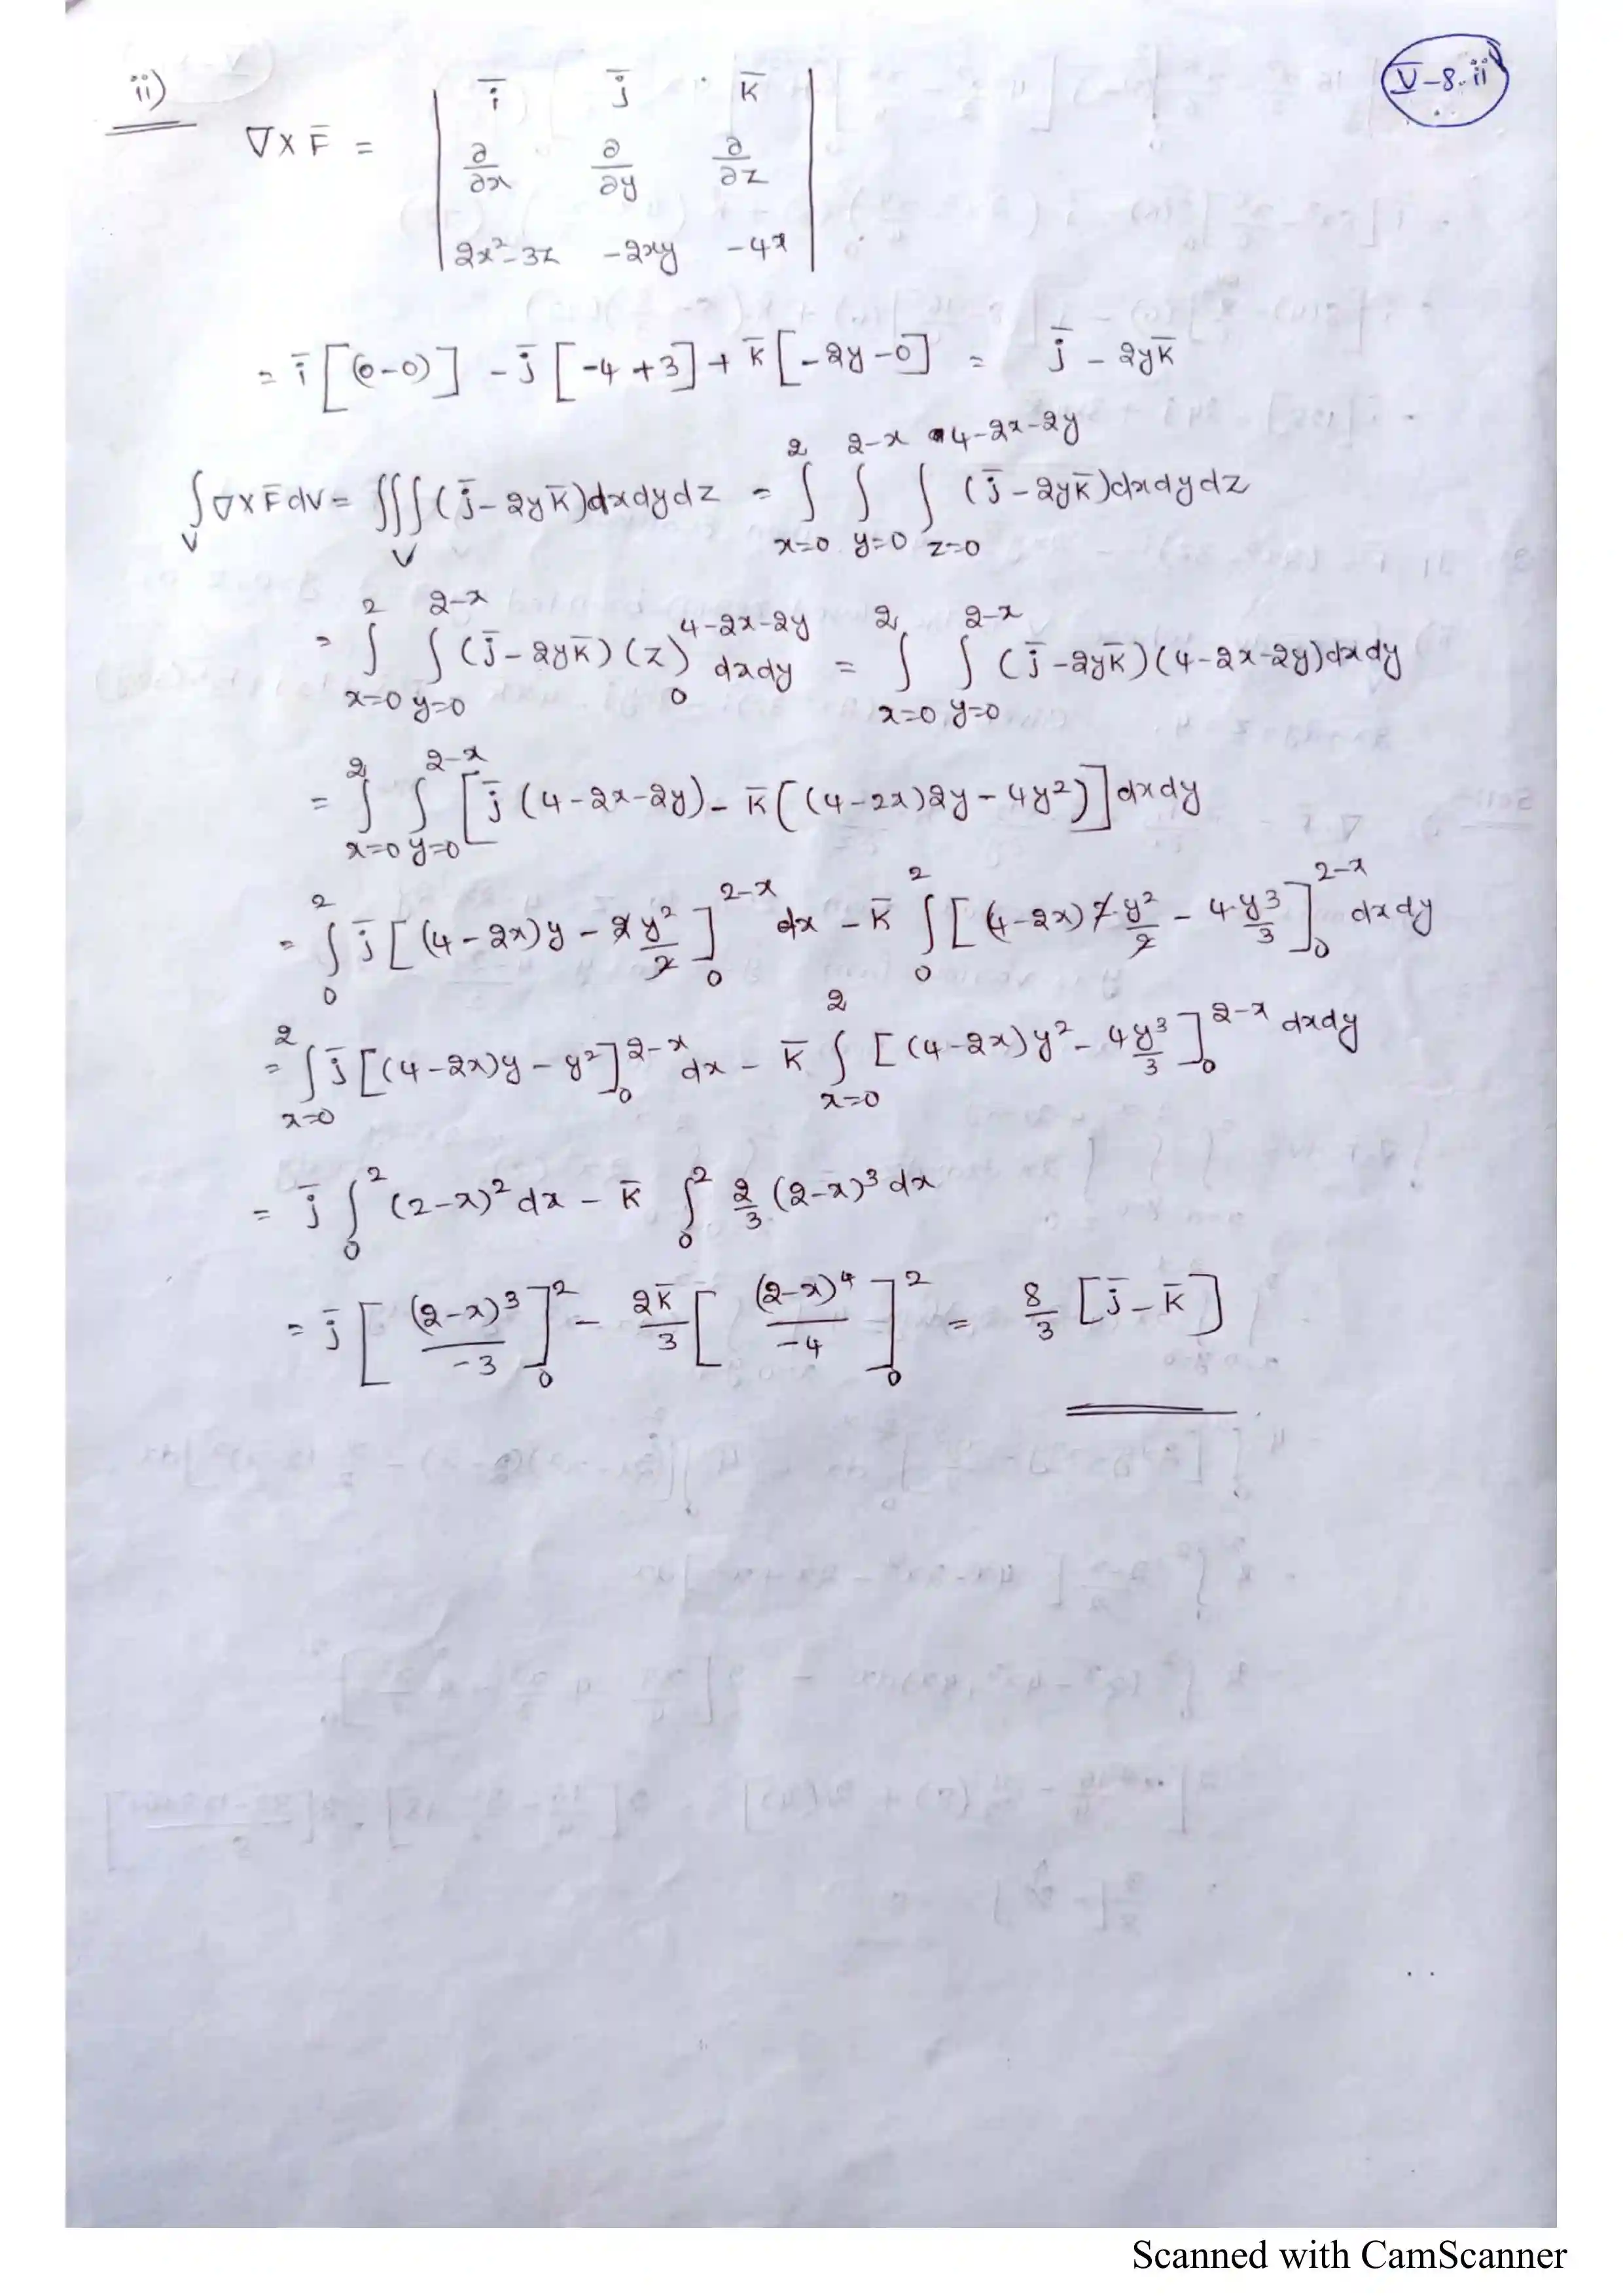 V-8.ii
ii)
∇×F̄ = | ī j̄ k̄ |
| ∂/∂x ∂/∂y ∂/∂z |
| 2x²-3z -2xy -4x |
= ī[(0-0)] - j̄[-4+3] + k̄[-2y-0] = j̄ - 2yk̄
∫_V ∇×F̄ dV = ∭_V (j̄-2yk̄)dxdydz = ∫_{x=0}^{2} ∫_{y=0}^{2-x} ∫_{z=0}^{4-2x-2y} (j̄-2yk̄)dxdydz
= ∫_{x=0}^{2} ∫_{y=0}^{2-x} (j̄-2yk̄)(z)_0^{4-2x-2y} dxdy = ∫_{x=0}^{2} ∫_{y=0}^{2-x} (j̄-2yk̄)(4-2x-2y)dxdy
= ∫_{x=0}^{2} ∫_{y=0}^{2-x} [j̄(4-2x-2y) - k̄((4-2x)2y-4y²)]dxdy
= ∫_0^2 j̄[(4-2x)y - 2y²/2]_0^{2-x} dx - k̄ ∫_0^2 [(4-2x)2·y²/2 - 4·y³/3]_0^{2-x} dxdy
= ∫_{x=0}^{2} j̄[(4-2x)y - y²]_0^{2-x} dx - k̄ ∫_{x=0}^{2} [(4-2x)y² - 4y³/3]_0^{2-x} dxdy
= j̄ ∫_0^2 (2-x)² dx - k̄ ∫_0^2 2/3 (2-x)³ dx
= j̄[(2-x)³/-3]_0^2 - 2k̄/3 [(2-x)⁴/-4]_0^2 = 8/3 [j̄-k̄]
Scanned with CamScanner